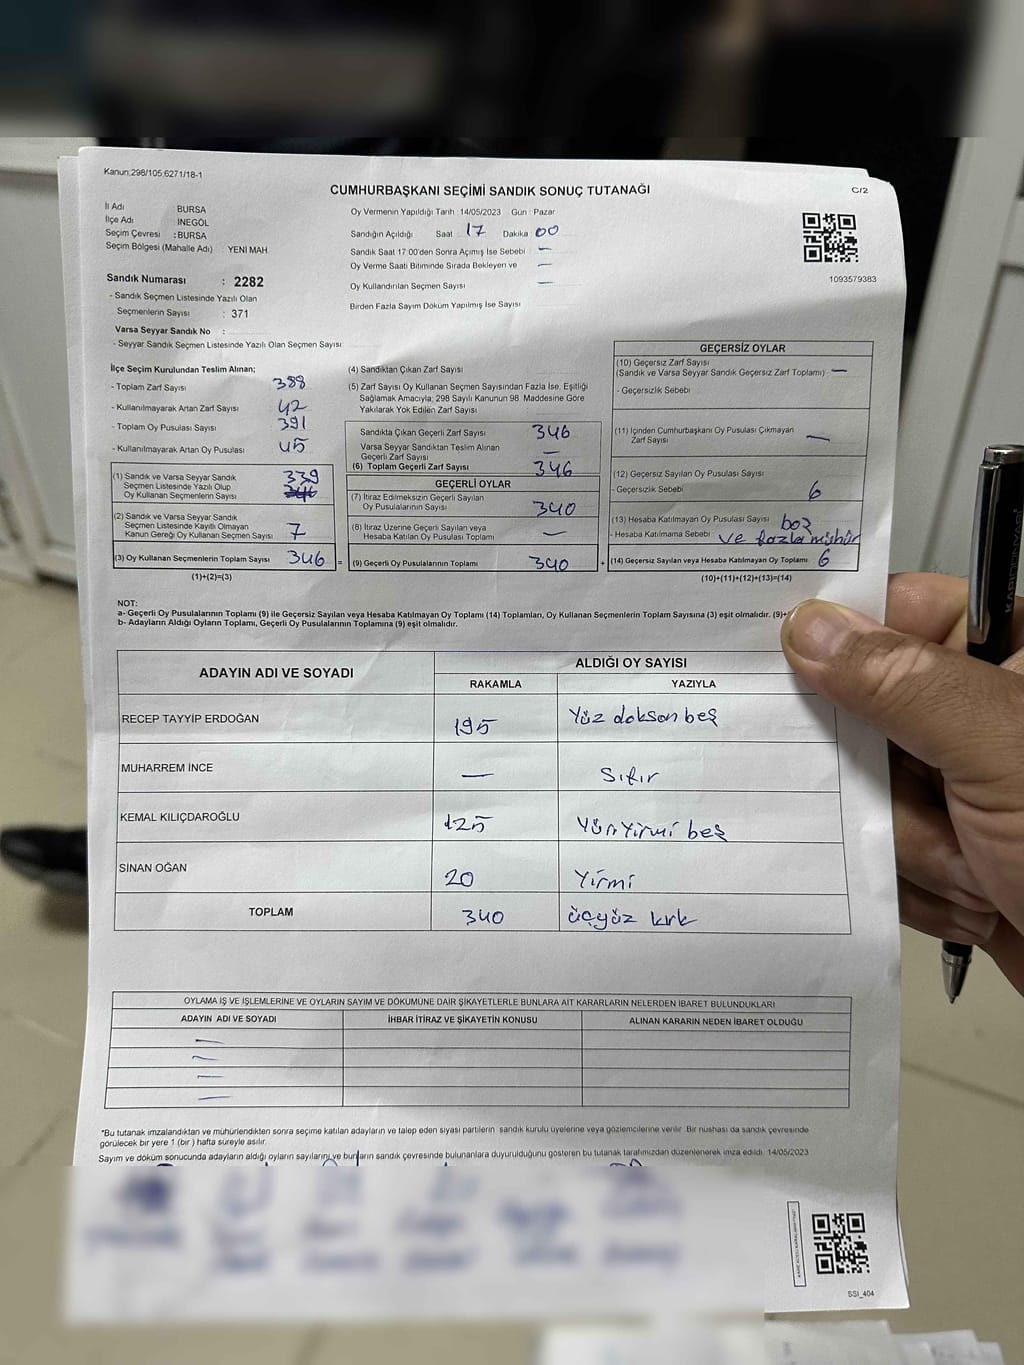 Kanun:298/105,6271/18-1
CUMHURBAŞKANI SEÇİMİ SANDIK SONUÇ TUTANAĞI
C/2
İl Adı : BURSA
İlçe Adı : İNEGÖL
Seçim Çevresi : BURSA
Seçim Bölgesi (Mahalle Adı) YENİ MAH.
Oy Vermenin Yapıldığı Tarih :14/05/2023 Gün : Pazar
Sandığın Açıldığı Saat : 17 Dakika : 00
Sandık Saat 17:00'den Sonra Açımış İse Sebebi : —
Oy Verme Saati Bitiminde Sırada Bekleyen ve —
Oy Kullandırılan Seçmen Sayısı : —
Birden Fazla Sayım Döküm Yapılmış İse Sayısı
1093579383
Sandık Numarası : 2282
- Sandık Seçmen Listesinde Yazılı Olan
Seçmenlerin Sayısı : 371
Varsa Seyyar Sandık No :
- Seyyar Sandık Seçmen Listesinde Yazılı Olan Seçmen Sayısı:
İlçe Seçim Kurulundan Teslim Alınan;
- Toplam Zarf Sayısı 388
- Kullanılmayarak Artan Zarf Sayısı 42
- Toplam Oy Pusulası Sayısı 391
- Kullanılmayarak Artan Oy Pusulası 45
(1) Sandık ve Varsa Seyyar Sandık
Seçmen Listesinde Yazılı Olup
Oy Kullanan Seçmenlerin Sayısı 339
(2) Sandık ve Varsa Seyyar Sandık
Seçmen Listesinde Kayıtlı Olmayan
Kanun Gereği Oy Kullanan Seçmen Sayısı 7
(3) Oy Kullanan Seçmenlerin Toplam Sayısı 346
(1)+(2)=(3)
(4) Sandıktan Çıkan Zarf Sayısı
(5) Zarf Sayısı Oy Kullanan Seçmen Sayısından Fazla İse, Eşitliği
Sağlamak Amacıyla; 298 Sayılı Kanunun 98. Maddesine Göre
Yakılarak Yok Edilen Zarf Sayısı
Sandıkta Çıkan Geçerli Zarf Sayısı 346
Varsa Seyyar Sandıktan Teslim Alınan
Geçerli Zarf Sayısı —
(6) Toplam Geçerli Zarf Sayısı 346
GEÇERLİ OYLAR
(7) İtiraz Edilmeksizin Geçerli Sayılan
Oy Pusulalarının Sayısı 340
(8) İtiraz Üzerine Geçerli Sayılan veya
Hesaba Katılan Oy Pusulası Toplamı —
= (9) Geçerli Oy Pusulalarının Toplamı 340
GEÇERSİZ OYLAR
(10) Geçersiz Zarf Sayısı
(Sandık ve Varsa Seyyar Sandık Geçersiz Zarf Toplamı) —
- Geçersizlik Sebebi
(11) İçinden Cumhurbaşkanı Oy Pusulası Çıkmayan
Zarf Sayısı —
(12) Geçersiz Sayılan Oy Pusulası Sayısı
- Geçersizlik Sebebi 6
(13) Hesaba Katılmayan Oy Pusulası Sayısı boş
- Hesaba Katılmama Sebebi ve fazla mühür
+ (14) Geçersiz Sayılan veya Hesaba Katılmayan Oy Toplamı 6
(10)+(11)+(12)+(13)=(14)
NOT:
a- Geçerli Oy Pusulalarının Toplamı (9) ile Geçersiz Sayılan veya Hesaba Katılmayan Oy Toplamı (14) Toplamları, Oy Kullanan Seçmenlerin Toplam Sayısına (3) eşit olmalıdır. (9)+
b- Adayların Aldığı Oyların Toplamı, Geçerli Oy Pusulalarının Toplamına (9) eşit olmalıdır.
ADAYIN ADI VE SOYADI
ALDIĞI OY SAYISI
RAKAMLA YAZIYLA
RECEP TAYYİP ERDOĞAN 195 Yüz doksan beş
MUHARREM İNCE — Sıfır
KEMAL KILIÇDAROĞLU 125 Yüzyirmi beş
SİNAN OĞAN 20 Yirmi
TOPLAM 340 üçyüz kırk
OYLAMA İŞ VE İŞLEMLERİNE VE OYLARIN SAYIM VE DÖKÜMÜNE DAİR ŞİKAYETLERLE BUNLARA AİT KARARLARIN NELERDEN İBARET BULUNDUKLARI
ADAYIN ADI VE SOYADI İHBAR İTİRAZ VE ŞİKAYETİN KONUSU ALINAN KARARIN NEDEN İBARET OLDUĞU
—
—
—
—
*Bu tutanak imzalandıktan ve mühürlendikten sonra seçime katılan adayların ve talep eden siyasi partilerin sandık kurulu üyelerine veya gözlemcilerine verilir. Bir nüshası da sandık çevresinde
görülecek bir yere 1 (bir) hafta süreyle asılır.
Sayım ve döküm sonucunda adayların aldığı oyların sayılarını ve bunların sandık çevresinde bulunanlara duyurulduğunu gösteren bu tutanak tarafımızdan düzenlenerek imza edildi. 14/05/2023
SSI_404